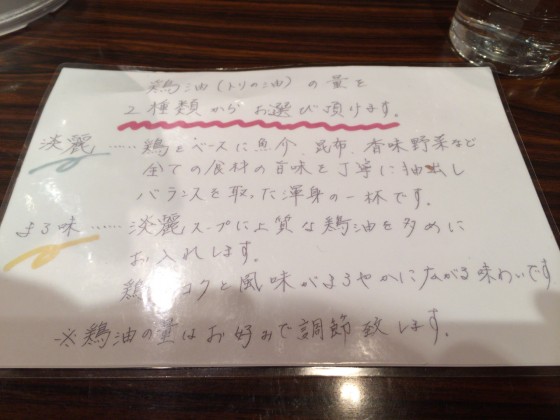 鶏油(トリの油)の量を
2種類からお選び頂けます。
淡麗……鶏をベースに魚介、昆布、香味野菜など
全ての食材の旨味を丁寧に抽出し
バランスを取った渾身の一杯です。
まる味……淡麗スープに上質な鶏油を多めに
お入れします。
鶏 コクと風味がまろやかに広がる味わいです
※鶏油の量はお好みで調節致します。